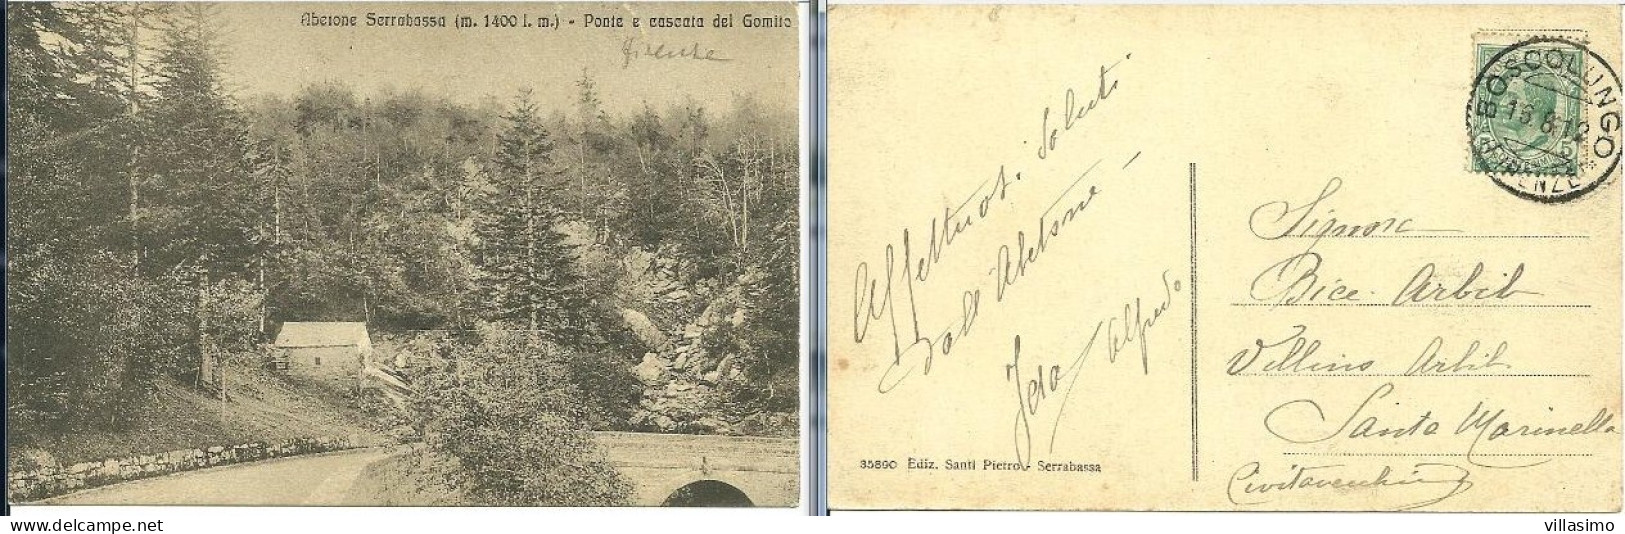 Abetone Serrabassa (m. 1400 l. m.) - Ponte e cascata del Gomito
Firenze
Affettuosi Saluti
Dall'Abetone -
Alfredo
35890 Ediz. Santi Pietro - Serrabassa
BOSCOLUNGO
13.8.12
FIRENZE
5
Signora
Bice Arbib
Villino Arbib
Santa Marinella
Civitavecchia
www.delcampe.net
villasimo